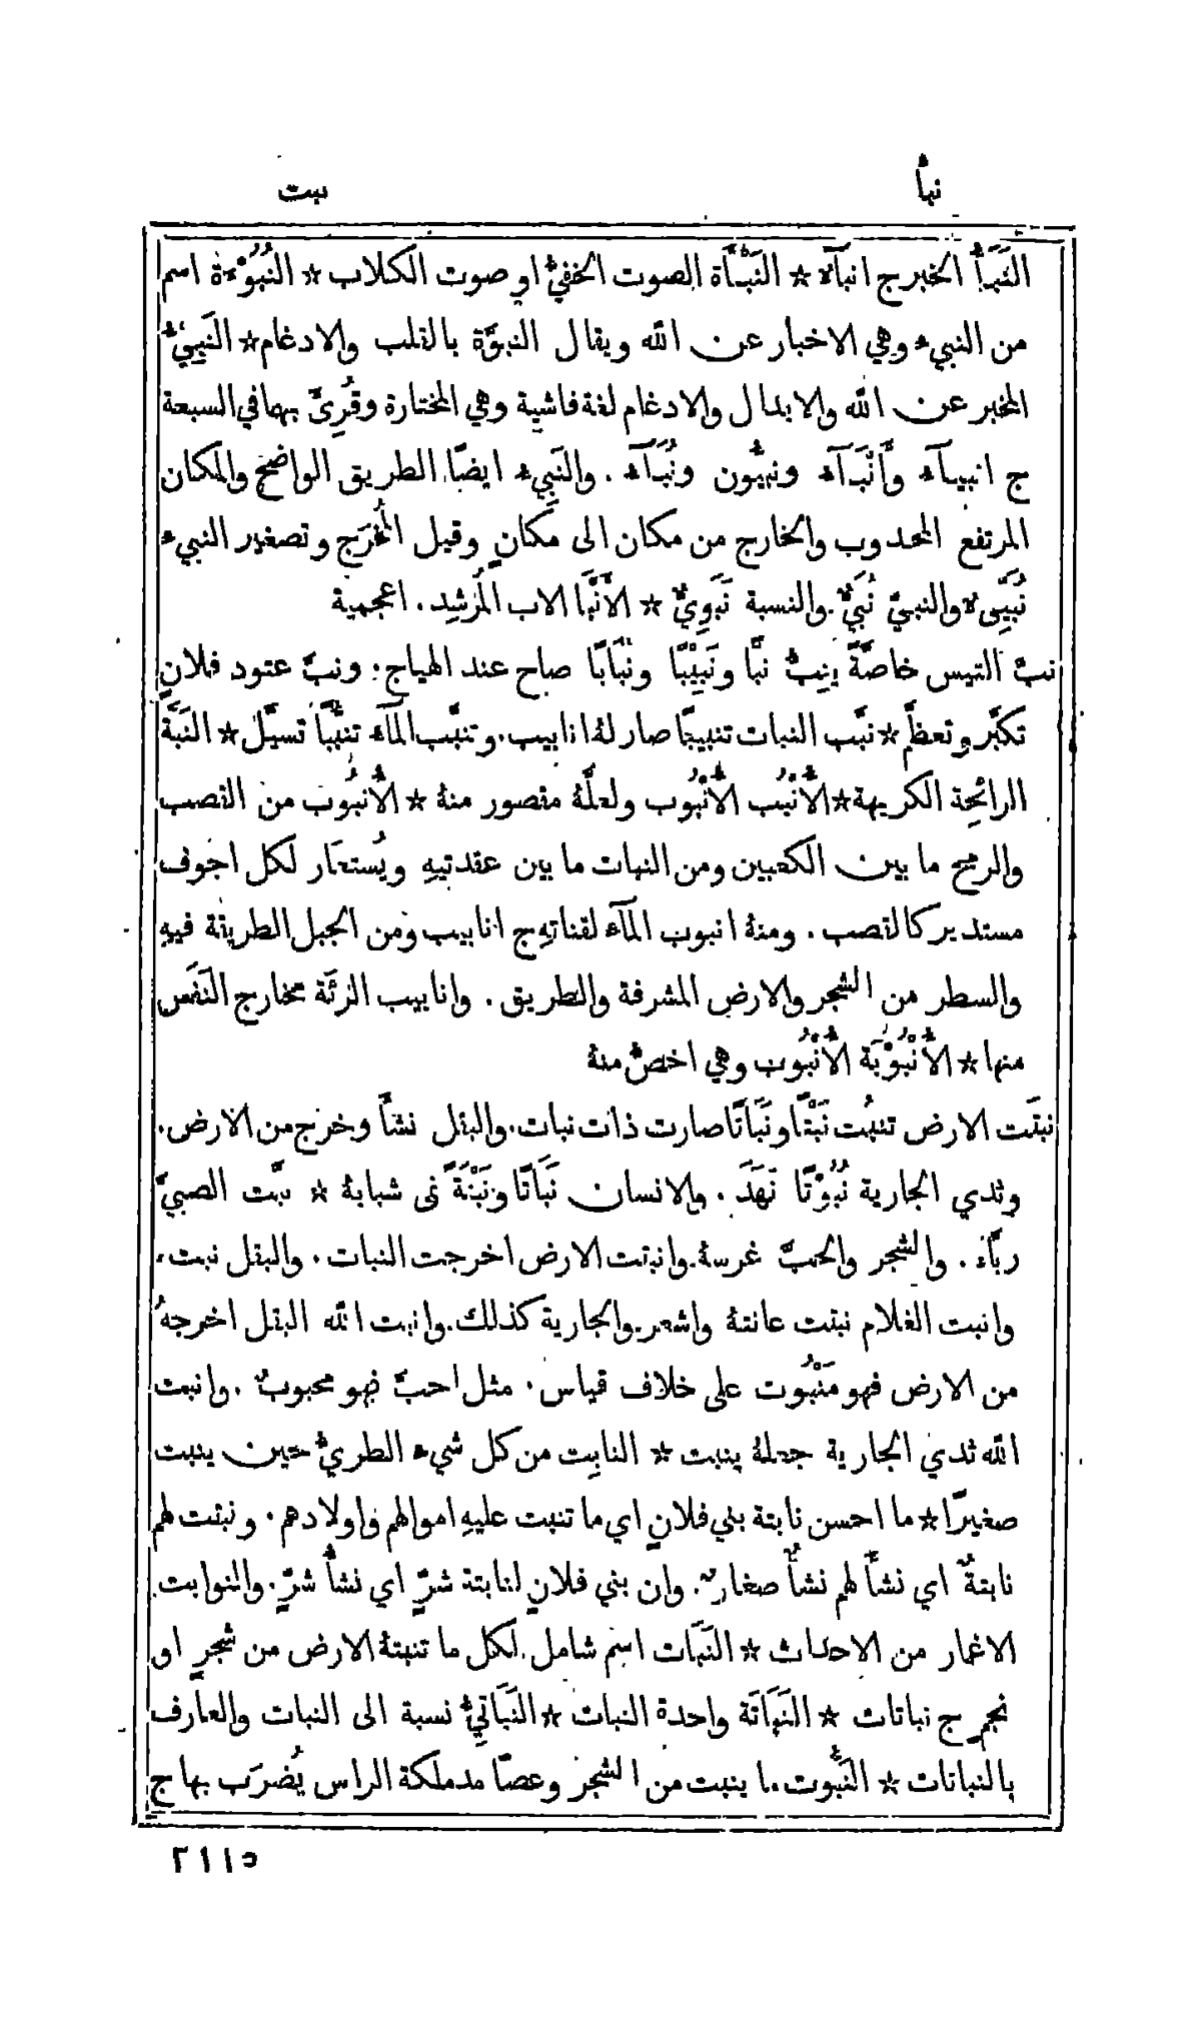 نبأ
نبت
النَبَأُ الخبر ج انبآء * النَبْأَة الصوت الخفيُّ او صوت الكلاب * النُبُوْءَة اسم
من النبيء وهي الاخبار عن الله ويقال النبوَّة بالقلب والادغام * النَبِيْءُ
المخبر عن الله والابدال والادغام لغة فاشية وهي المختارة وقُرِئَ بهما في السبعة
ج انبيآء وأَنْبَآء ونبيُّون ونُبَآء . والنَبِيء ايضًا الطريق الواضح والمكان
المرتفع المحدوب والخارج من مكان الى مكانٍ وقيل المُخرَج وتصغير النبيء
نُبَيِّئ والنبيّ نُبَيٌّ. والنسبة نَبَوِيٌّ * الأَنْبَا الاب المُرشِد . اعجمية
نبَّ التيس خاصَّةً يَنِبُّ نبًّا ونَبِيْبًا ونُبَابًا صاح عند الهياج . ونبَّ عتود فلانٍ
تكبَّر وتعظَّم * نبَّب النبات تنبيبًا صار لهُ انابيب. وتنبَّب المآء تنبُّبًا تسيَّل * النَبَّة
الرائحة الكريهة * الأُنْبُب الأُنْبُوب ولعلَّهُ مقصور منهُ * الأُنبُوب من القصب
والرمح ما بين الكعبين ومن النبات ما بين عقدتيهِ ويُستعار لكل اجوف
مستدير كالقصب . ومنهُ انبوب المآء لقناتهِ ج انابيب ومن الجبل الطريقة فيهِ
والسطر من الشجر والارض المشرفة والطريق . وانابيب الرئَة مخارج النَفَس
منها * الأُنْبُوْبَة الأُنْبُوب وهي اخصُّ منهُ
نبتَت الارض تنبُت نَبْتًا ونَبَاتًا صارت ذات نبات. والبقل نشأَ وخرج من الارض.
وثدي الجارية نُبُوْتًا نَهَدَ . والانسان نَبَاتًا ونَبْتَةً نمى شبابهُ * نبَّت الصبيَّ
ربَّاهُ . والشجر والحبَّ غرسهُ. وانبتت الارض اخرجت النبات . والبقل نبت .
وانبت الغلام نبتت عانتهُ واشعر. والجارية كذلك. وانبت الله البقل اخرجهُ
من الارض فهو مَنْبُوت على خلاف قياس . مثل احبَّ فهو محبوبٌ . وانبت
الله ثدي الجارية جعلهُ ينبت * النابِت من كل شيء الطريُّ حين ينبت
صغيرًا * ما احسن نابتة بني فلانٍ اي ما تنبت عليهِ اموالهم واولادهم . ونبتت لهم
نابتةٌ اي نشأَ لهم نشأٌ صغارٌ . وان بني فلانٍ لنابتة شرٍّ اي نشأُ شرٍّ. والنوابت
الاغمار من الاحداث * النَبَات اسم شامل لكل ما تنبتهُ الارض من شجرٍ او
نجم ج نباتات * النَبَاتَة واحدة النبات * النَبَاتِيُّ نسبة الى النبات والعارف
بالنباتات * النَبُّوت ما ينبت من الشجر وعصًا مدملكة الراس يُضرَب بها ج
٢١١٥